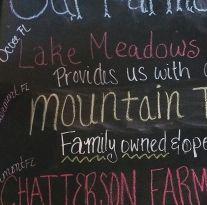 Our Farm
Ocoee FL
Lake Meadows
Provides us with
mountain T
FL
Family owned & ope
FL
CHATTERSON FARM